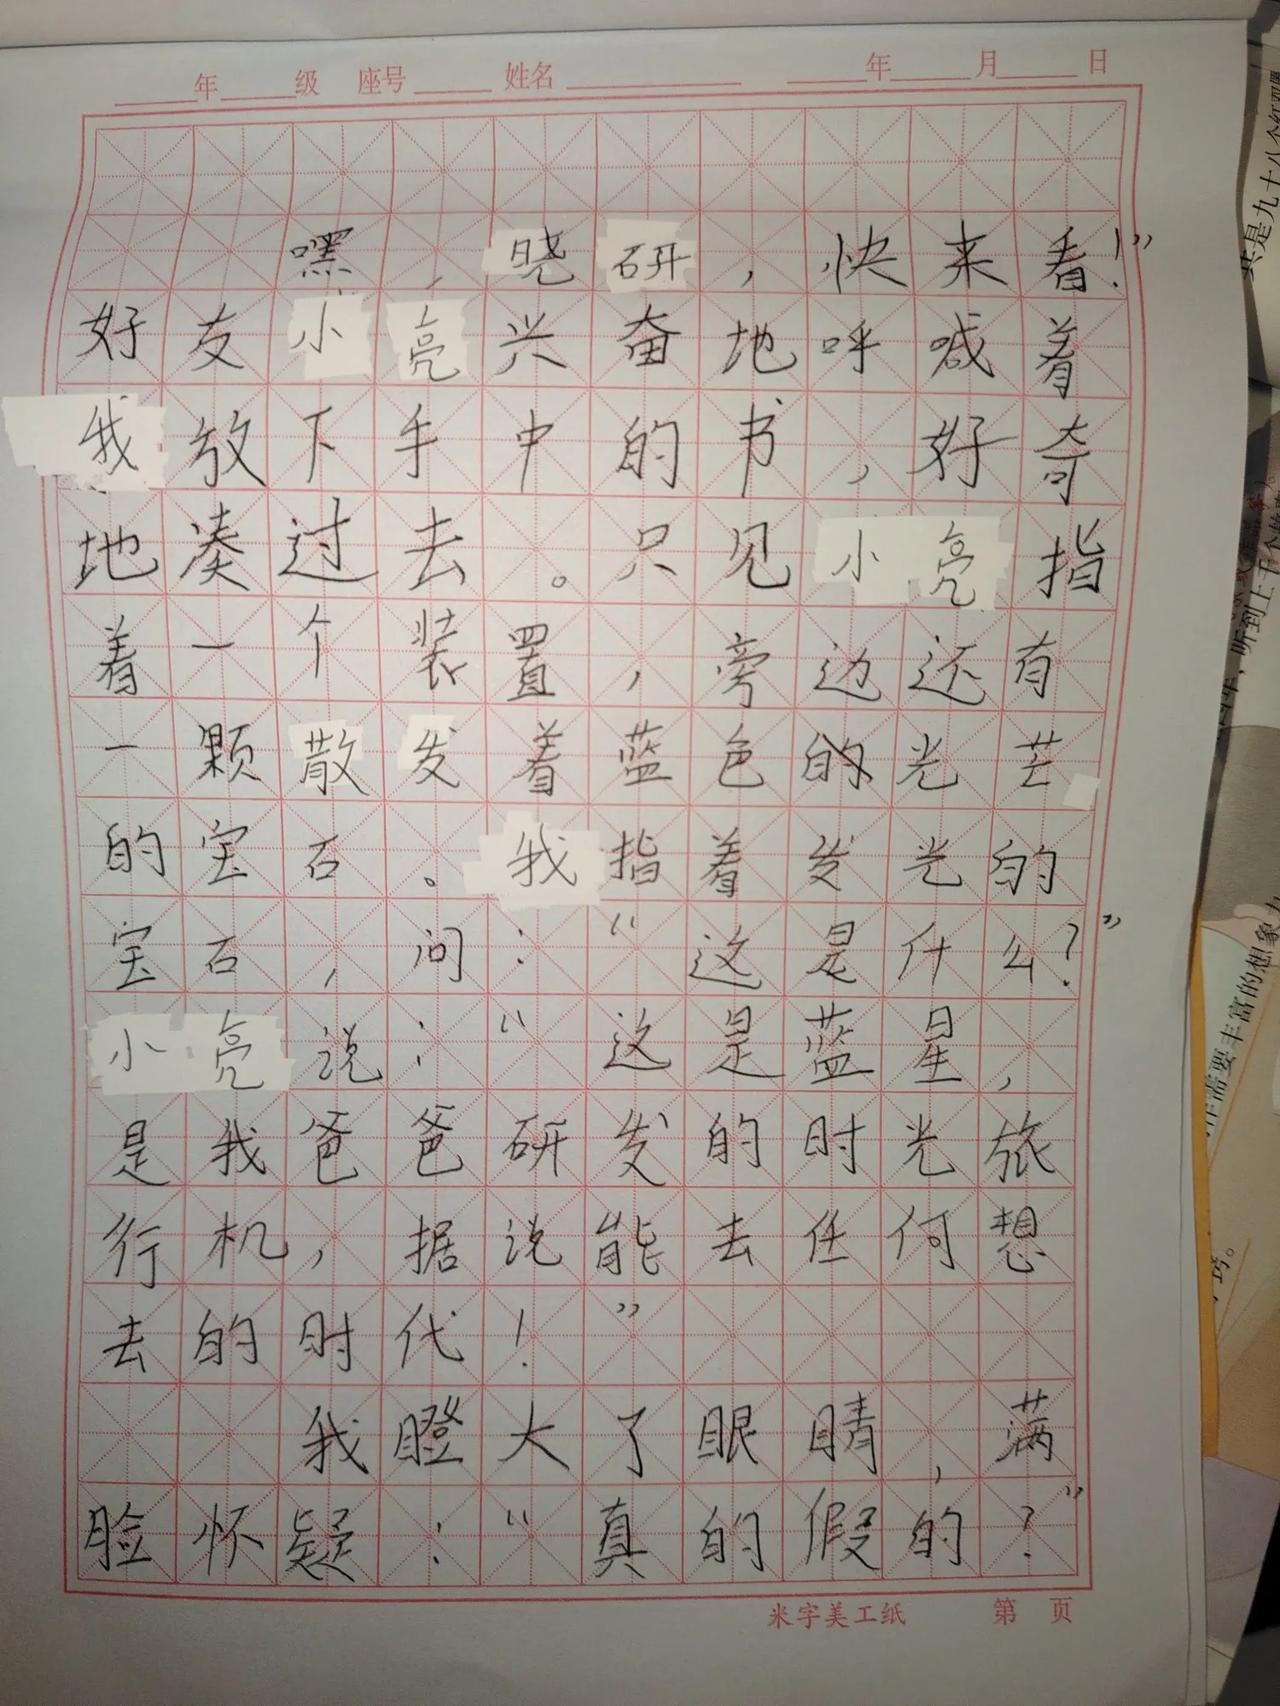 年 级 座号 姓名 年 月 日
嘿，晓研，快来看！”
好友小亮兴奋地呼喊着
我放下手中的书，好奇
地凑过去。只见小亮指
着一个装置，旁边还有
一颗散发着蓝色的光芒
的宝石。我指着发光的
宝石，问：“这是什么？”
小亮说：“这是蓝星，
是我爸爸研发的时光旅
行机，据说能去任何想
去的时代！”
我瞪大了眼睛，满
脸怀疑：“真的假的？”
米字美工纸 第 页
其是九十八个
听到上千个
需要丰富的想象力